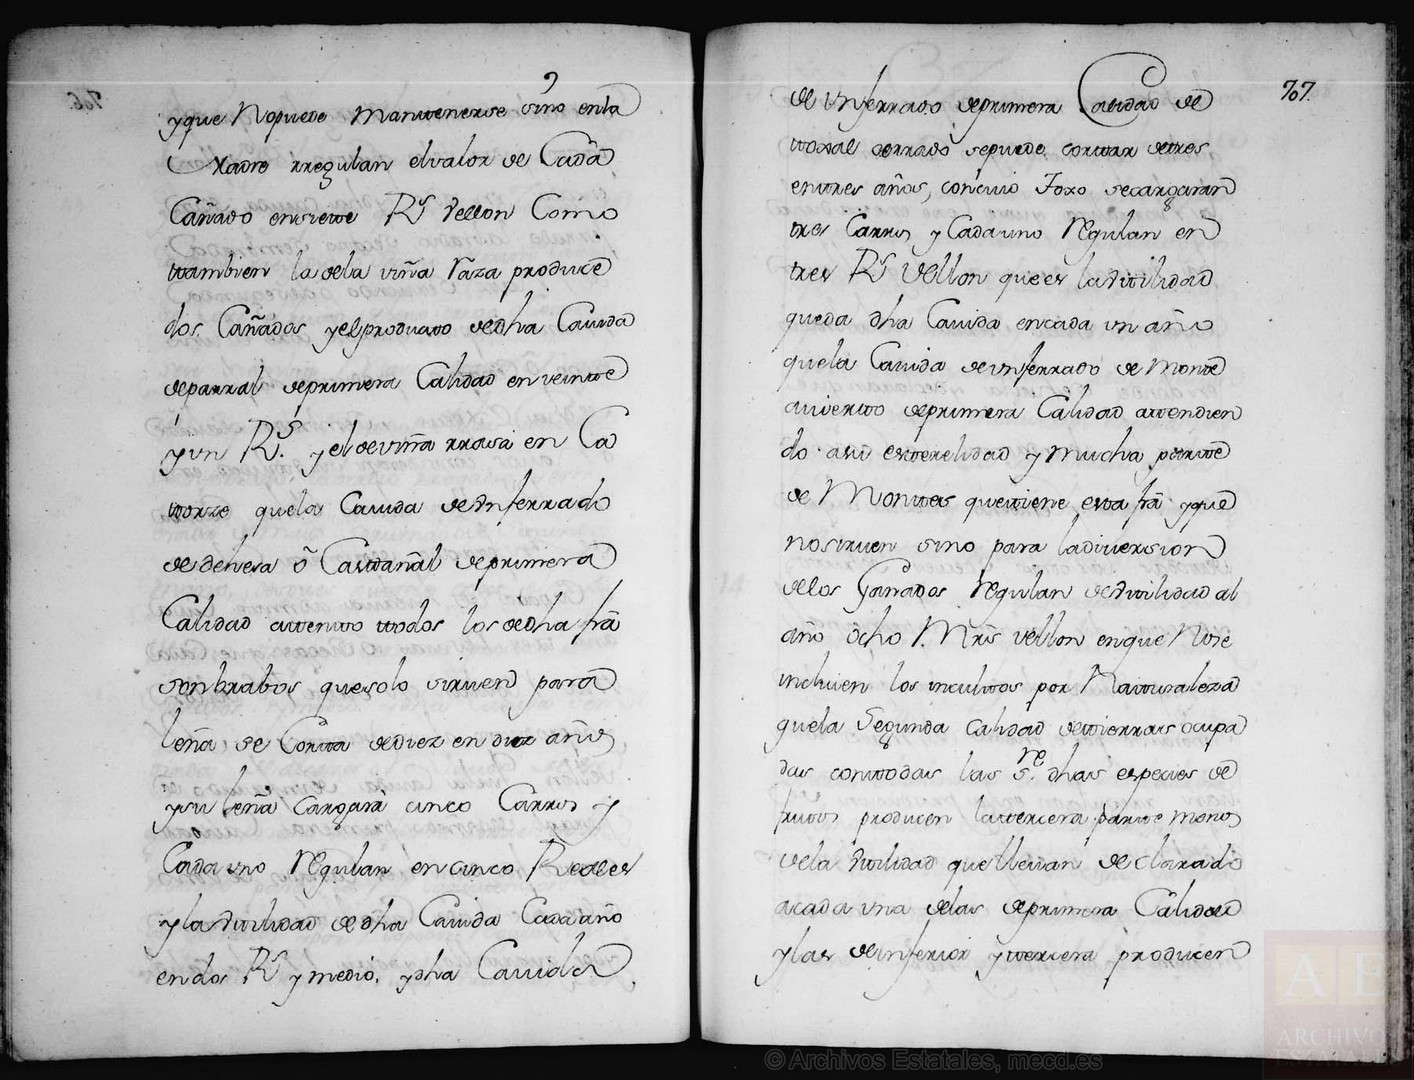 yque No puede mantenerse sino enla
Madre rregulan elvalor de Cada
Cañado ensiete Rs. Vellon Como
tambien la dela viña Raza produce
dos Cañados yelproducto dedha Cavida
deparral deprimera Calidad en veinte
yun Rs. y el deviña rrasa en Ca
torze quela Cavida deUnferrado
de dehesa ó Castañal deprimera
Calidad atento todos los dedha fra
son brabos, que solo sirven para
leña, se Corta dediez en diez años
ysu leña Cargará cinco Carros y
Cada uno Regulan en cinco Reales
y la Utilidad de dha Cavida Cada año
en dos Rs. y medio, y dha Cavida
767.
de Unferrado deprimera Calidad de
toxal serrado sepuede cortar detres
entres años, con cuio Toxo secargaran
tres Carros y Cada uno Regulan en
tres Rs Vellon que es la Utilidad
queda dha Cavida encada un año
quela Cavida deUnferrado de Monte
avierto deprimera Calidad atendien
do asu esterelidad y mucha parte
de Montes quetiene esta fra y que
nosirven sino para ladiversion
delos Ganados Regulan deUtilidad al
año ocho Mrs vellon enque Nose
incluien los incultos por Naturaleza
quela Segunda Calidad detierras ocupa
das contodas las Sre. dhas especies de
frutos producen latercera parte menos
dela Utilidad quellevan declarado
acada una delas deprimera Calidad
y las deinferior y tercera producen
© Archivos Estatales, mecd.es
AE
ARCHIVOS
ESTATALES